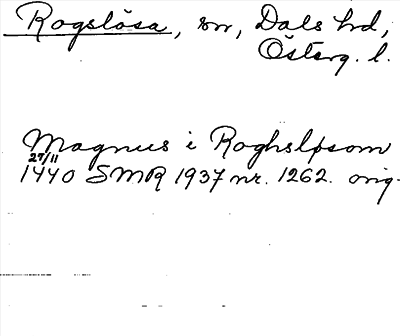 Rogslösa, sn, Dals hrd,
Österg. l.
Magnus i Roghsløsom
27/11
1440 SMR 1937 nr. 1262. orig.